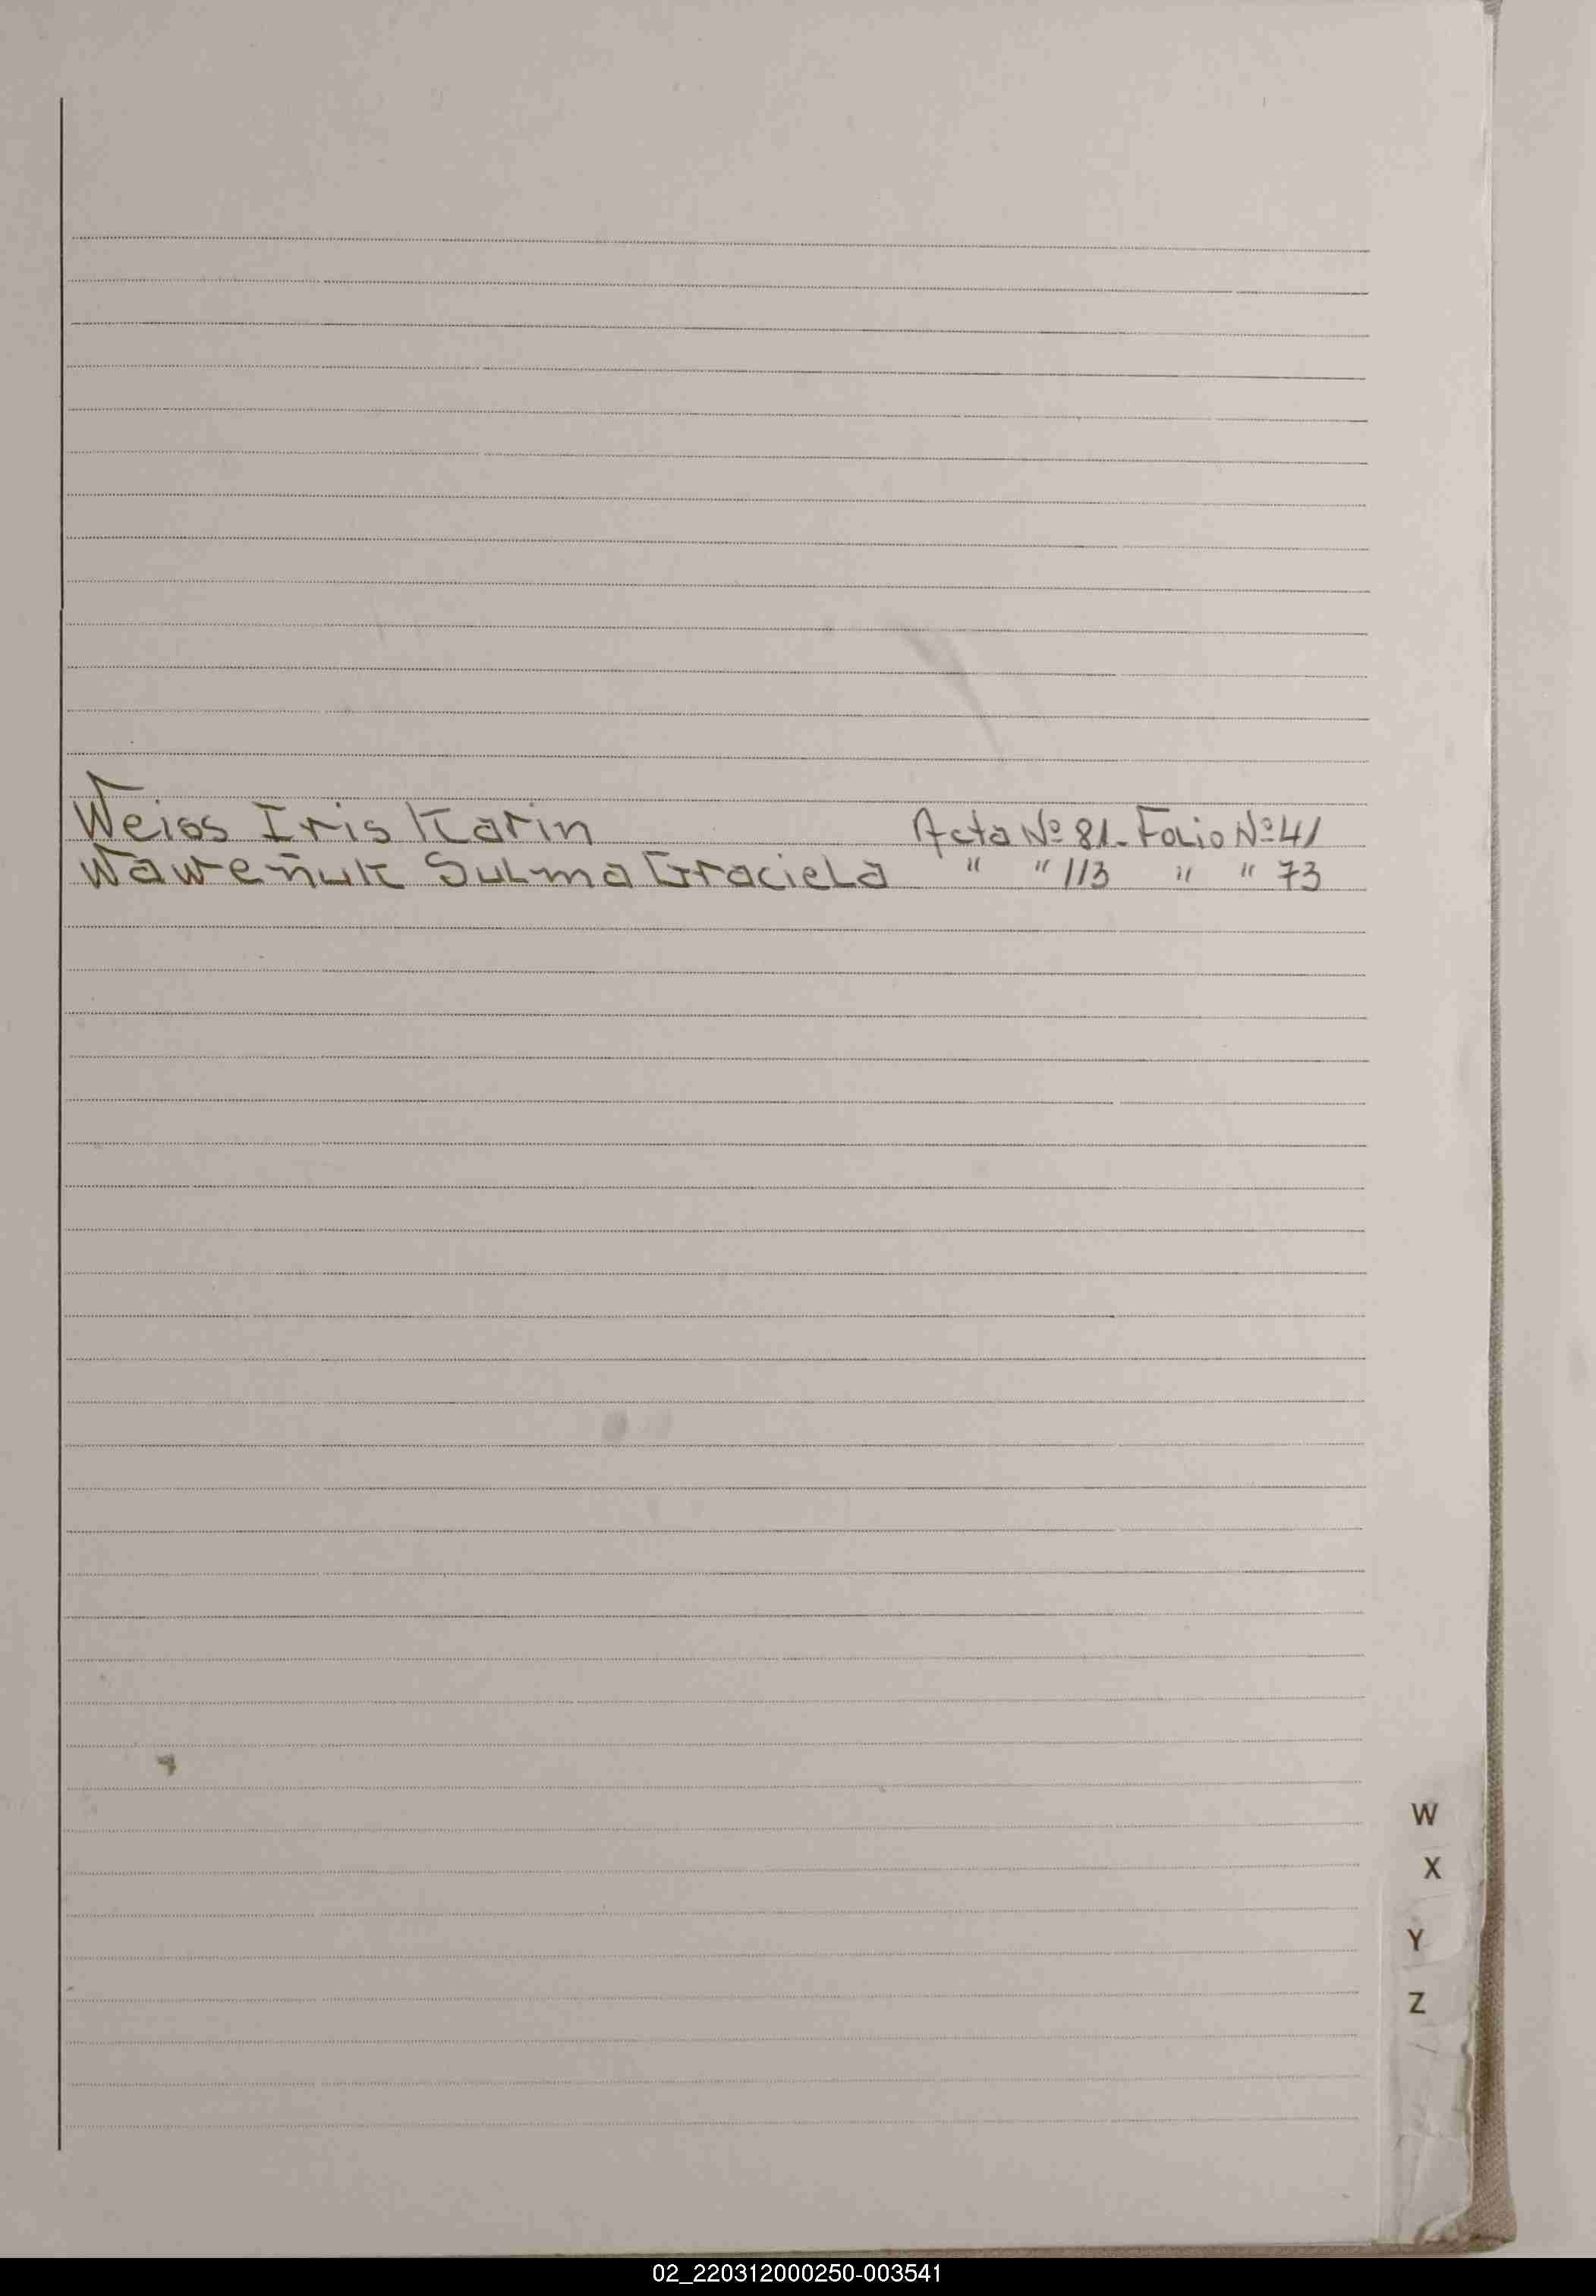 Weiss Iris Karin Acta Nº 81- Folio Nº 41
Waweñuk Sulma Graciela " " 113 " " 73
W
X
Y
Z
02_220312000250-003541